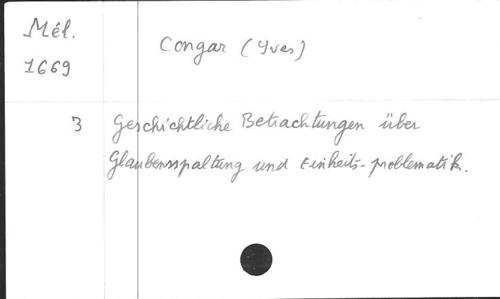 Mél.
1669
Congar (Yves)
3 Geschichtliche Betrachtungen über
Glaubensspaltung und Einheits-problematik.